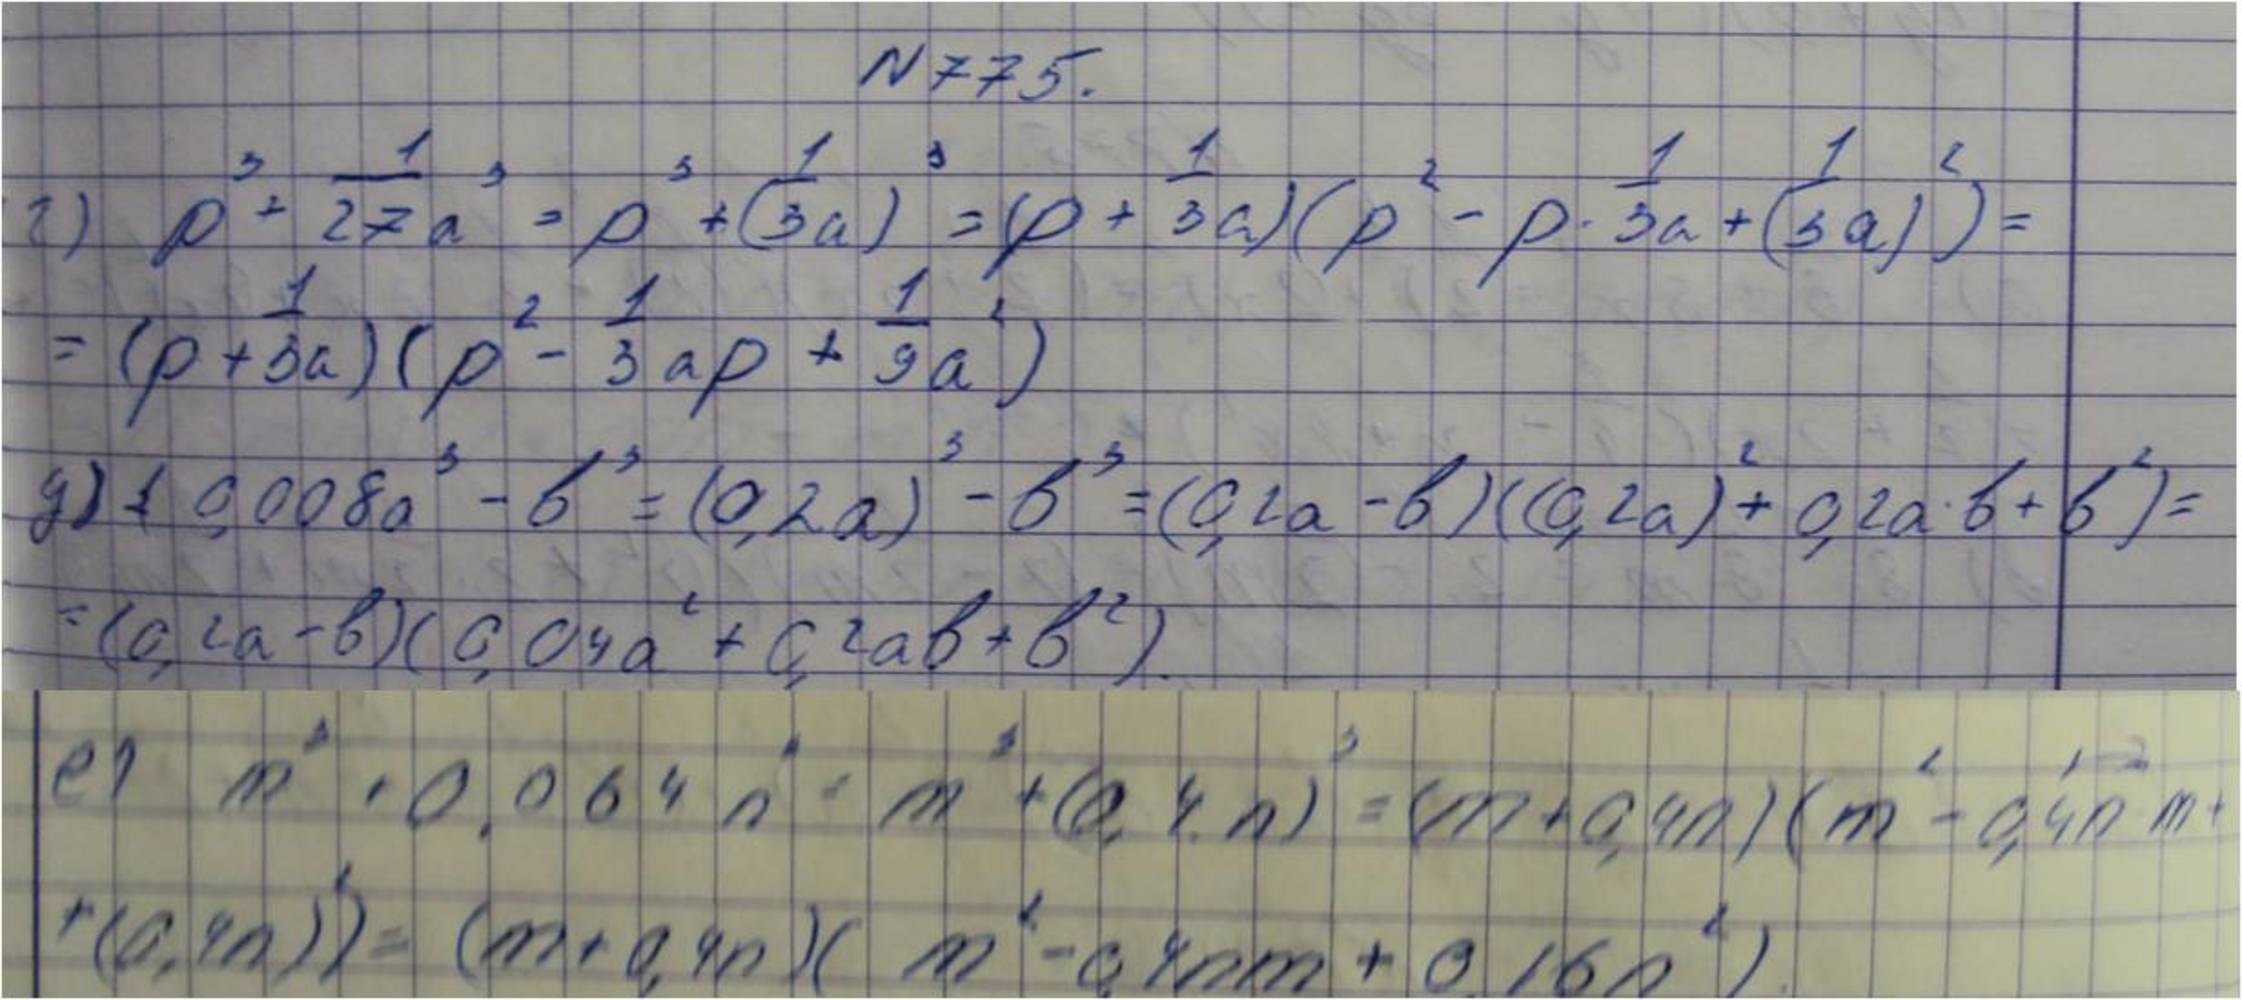 N 775.
г) p³ + 1/27 a³ = p³ + (1/3 a)³ = (p + 1/3 a)(p² - p · 1/3 a + (1/3 a)²) =
= (p + 1/3 a)(p² - 1/3 ap + 1/9 a²)
д) 0,008a³ - b³ = (0,2a)³ - b³ = (0,2a - b)((0,2a)² + 0,2a · b + b²) =
= (0,2a - b)(0,04a² + 0,2ab + b²).
е) m³ + 0,064n³ = m³ + (0,4n)³ = (m + 0,4n)(m² - 0,4n · m +
+ (0,4n)²) = (m + 0,4n)(m² - 0,4nm + 0,16n²).